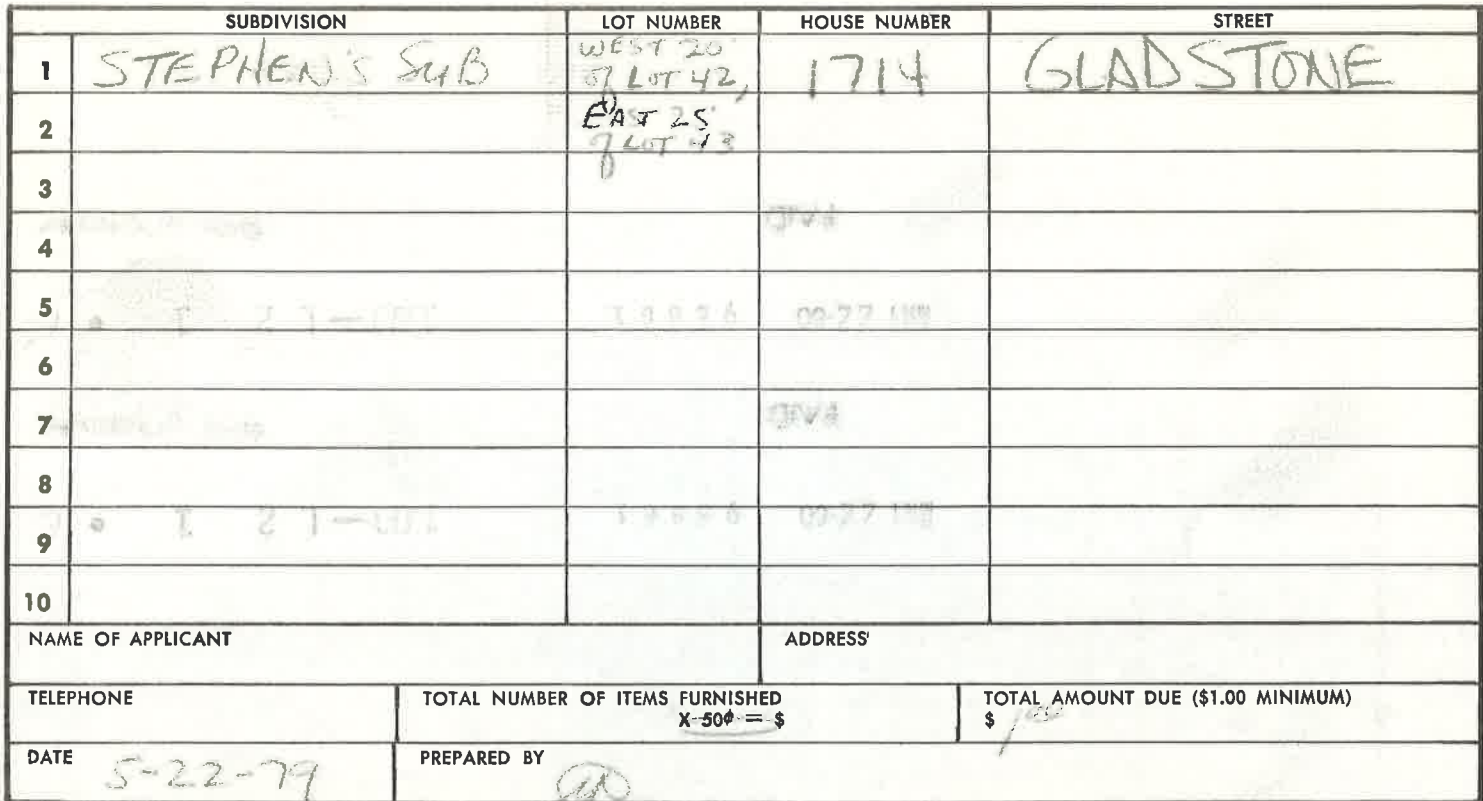 SUBDIVISION LOT NUMBER HOUSE NUMBER STREET
1 STEPHEN'S SUB WEST 20' of LOT 42, 1714 GLADSTONE
2 EAST 25' of LOT 43
3
4
5
6
7
8
9
10
NAME OF APPLICANT ADDRESS
TELEPHONE TOTAL NUMBER OF ITEMS FURNISHED TOTAL AMOUNT DUE ($1.00 MINIMUM)
X 50¢ = $ $ 1.00
DATE 5-22-79 PREPARED BY